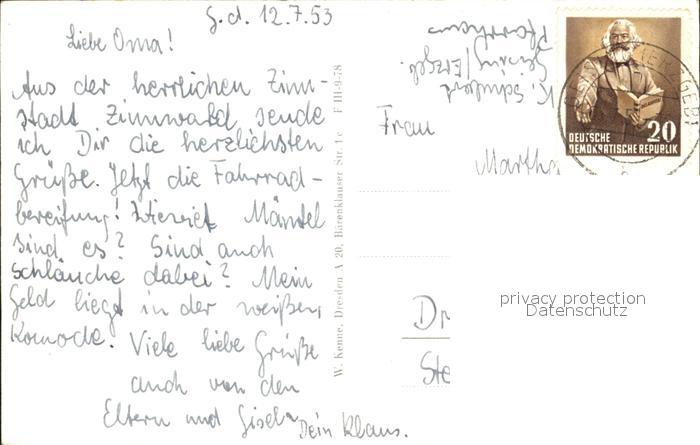 G. d. 12.7.53
Liebe Oma!
Aus der herrlichen Zinn-
stadt Zinnwald sende
ich Dir die herzlichsten
Grüße. Jetzt die Fahrrad-
bereifung! Wieviel Mäntel
sind es? Sind auch
Schläuche dabei? Mein
Geld liegt in der weißen
Komode. Viele liebe Grüße
auch von den
Eltern und Gisela
Dein Klaus.
W. Kenne, Dresden A 20, Bärenklauser Str. 1c F III-9-78
K. Schubert
Geising/Erzgeb.
Pfarrhaus
Frau
Martha
Dr
Ste
DEUTSCHE
DEMOKRATISCHE REPUBLIK
20
privacy protection
Datenschutz